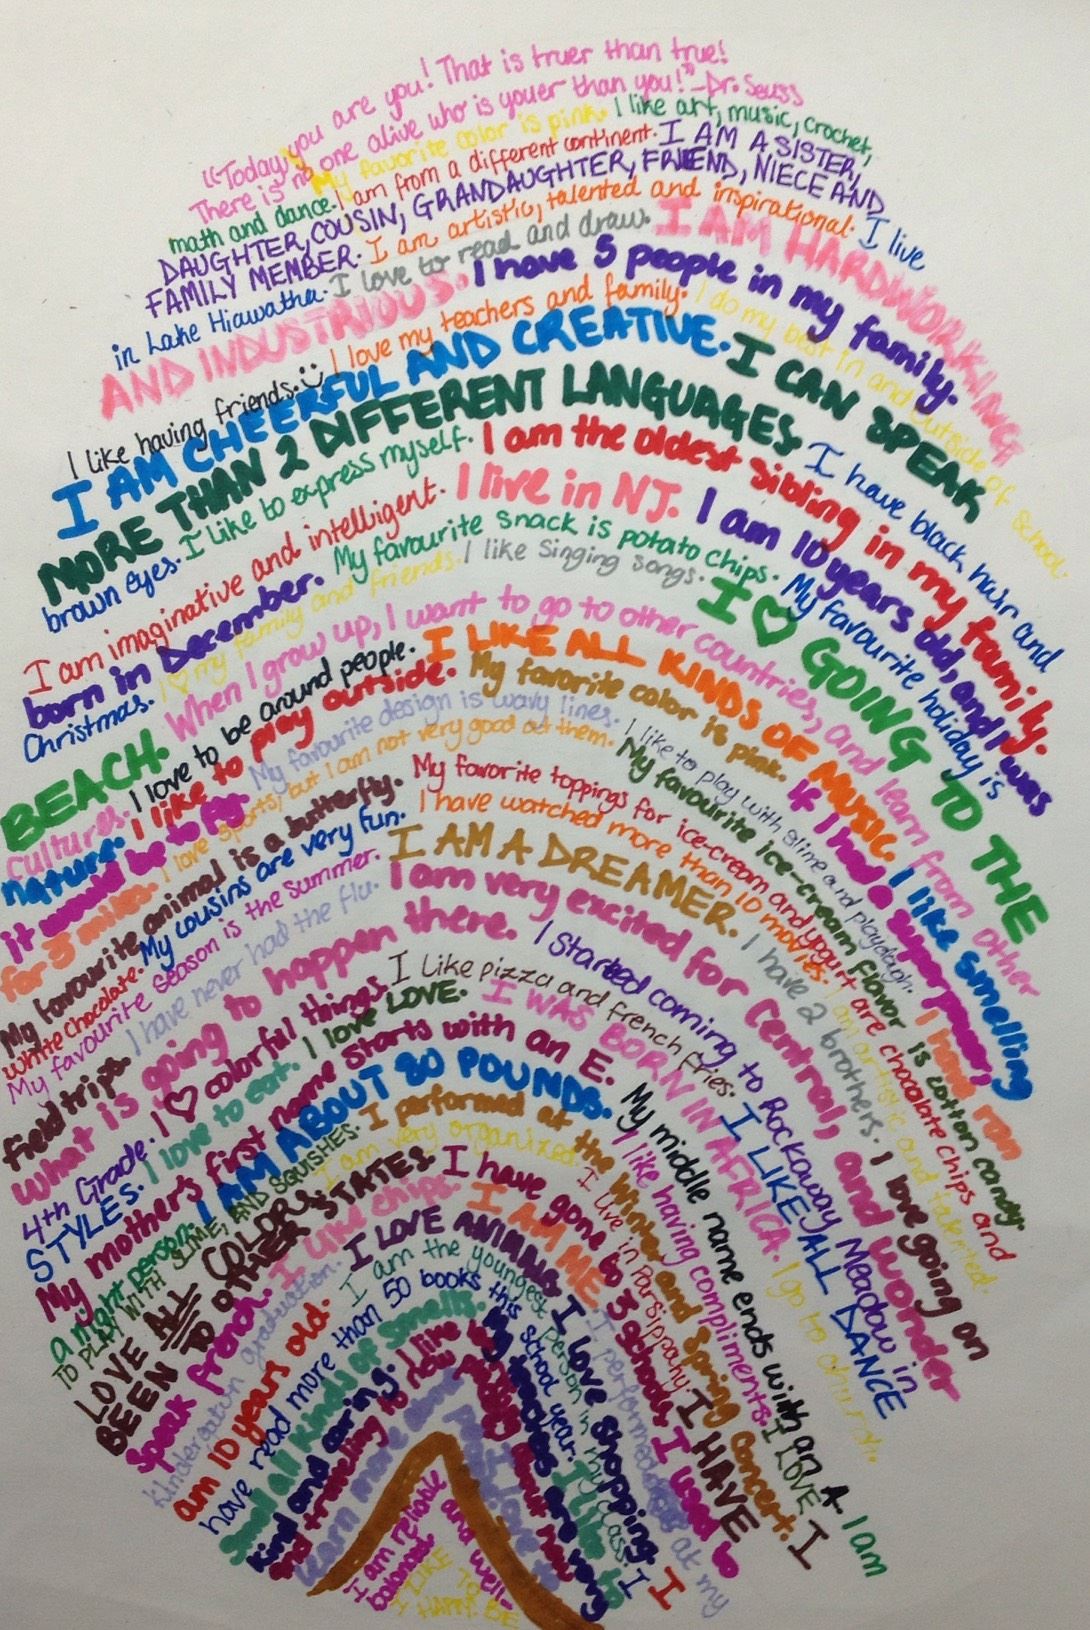 "Today you are you! That is truer than true!
There is no one alive who is youer than you!" -Dr. Seuss
My favorite color is pink. I like art, music, crochet,
math and dance. I am from a different continent. I AM A SISTER,
DAUGHTER, COUSIN, GRANDAUGHTER, FRIEND, NIECE AND
FAMILY MEMBER. I am artistic, talented and inspirational. I live
in Lake Hiawatha. I love to read and draw. I AM HARDWORKING
AND INDUSTRIOUS. I have 5 people in my family.
I like having friends. I love my teachers and family. I do my best in and outside of school.
I AM CHEERFUL AND CREATIVE. I CAN SPEAK
MORE THAN 2 DIFFERENT LANGUAGES. I have black hair and
brown eyes. I like to express myself. I am the oldest sibling in my family.
I am imaginative and intelligent. I live in NJ. I am 10 years old, and I was
born in December. My favourite snack is potato chips. My favourite holiday is
Christmas. I ♡ my family and friends. I like singing songs. I ♡ GOING TO THE
BEACH. When I grow up, I want to go to other countries, and learn from other
cultures. I love to be around people. I LIKE ALL KINDS OF MUSIC. I like smelling
nature. I like to play outside. My favorite color is pink. If I had a superpower,
it would be to fly. My favourite design is wavy lines. I like to play with slime and playdough. I have ran
for 3 miles. I love sports, but I am not very good at them. My favourite ice-cream flavor is cotton candy.
My favourite animal is a butterfly. My favorite toppings for ice-cream and yogurt are chocolate chips and
white chocolate. My cousins are very fun. I have watched more than 10 movies. I am artistic and talented.
My favourite season is the summer. I AM A DREAMER. I have 2 brothers. I love going on
field trips. I have never had the flu. I am very excited for Central, and wonder
what is going to happen there. I started coming to Rockaway Meadow in
4th Grade. I ♡ colorful things. I Like pizza and french fries. I LIKE ALL DANCE
STYLES. I love to eat. I love LOVE. I WAS BORN IN AFRICA. I go to church.
My mother's first name starts with an E. My middle name ends with an A. I am
a night person. I AM ABOUT 80 POUNDS. I like having compliments. I LOVE
TO PLAY WITH SLIME, AND SQUISHES. I performed at the Winter and Spring Concert. I
LOVE ALL COLORS. I am very organized. I live in Parsippany. I HAVE
BEEN TO OTHER STATES. I have gone to 3 schools. I used to
Speak french. I like chips. I AM ME. I performed at my
kindergarten graduation. I LOVE ANIMALS. I love shopping. I
am 10 years old. I am the youngest person in my class. I
have read more than 50 books this school year. I like to
Smell all kinds of smells. My teachers are very
kind and caring. I like
and traveling
learn more
I am reliable
and well-
balanced.
I LIKE TO
BE HAPPY.